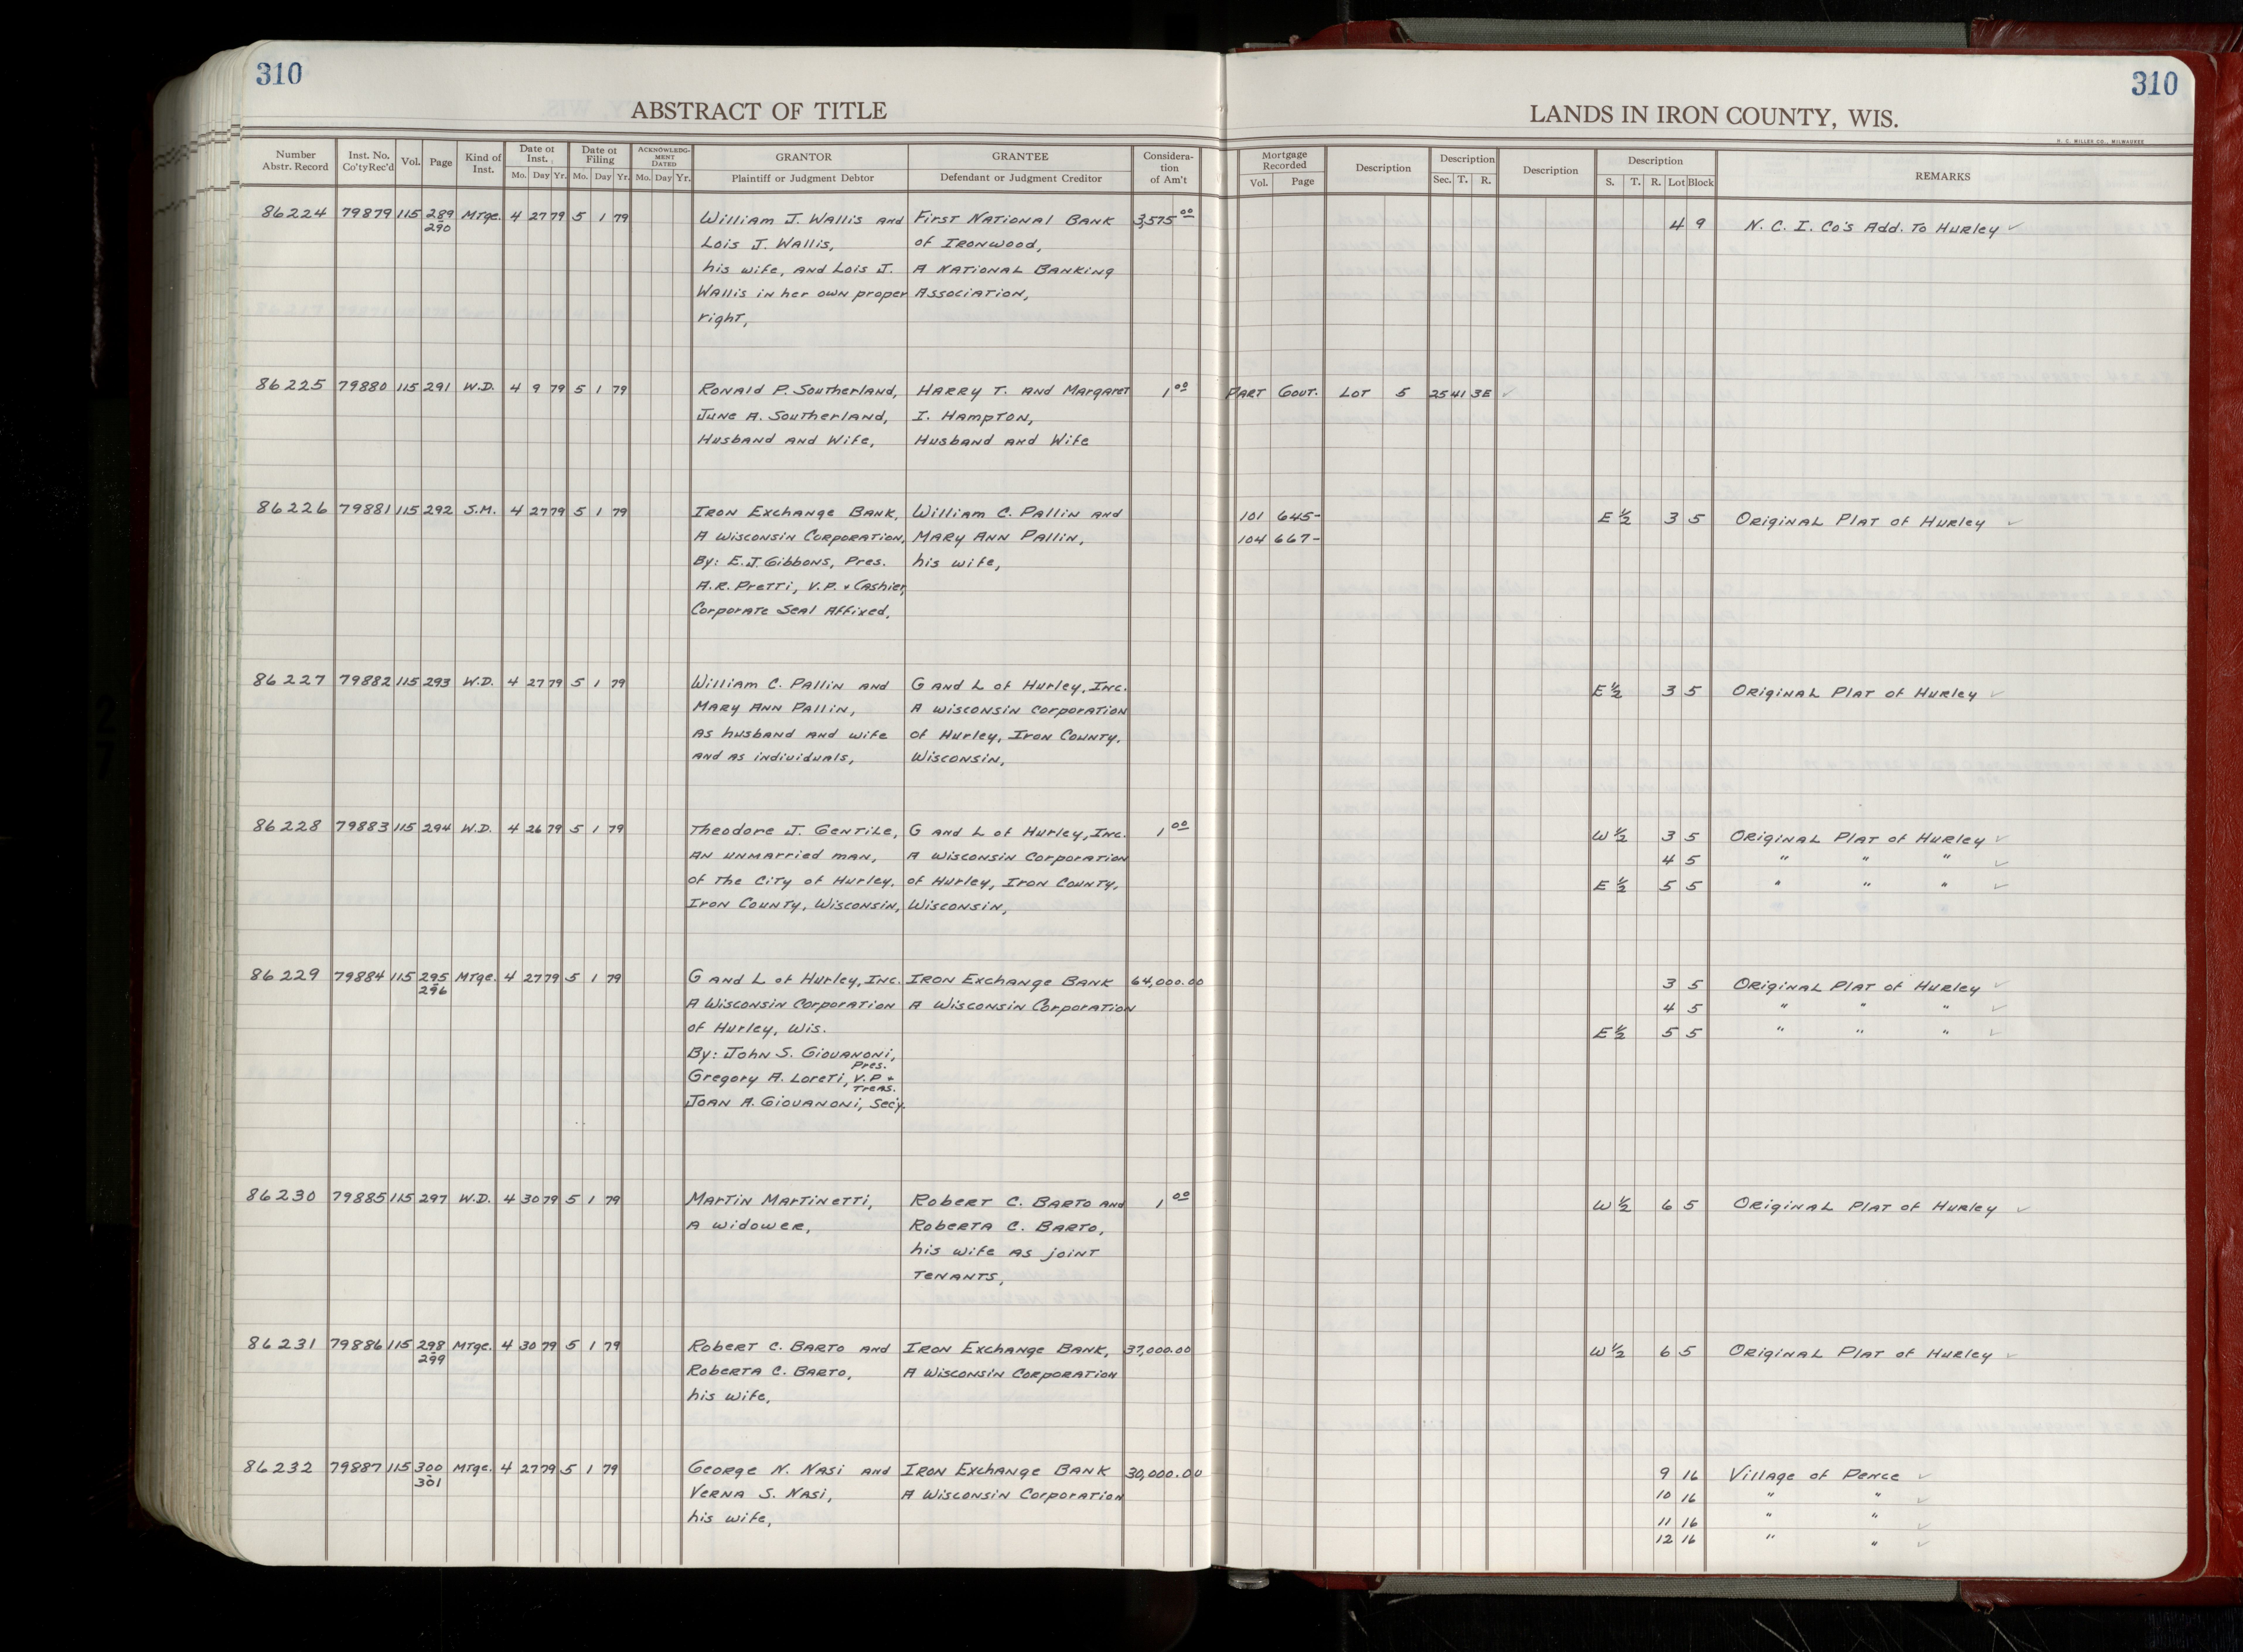 310
310
ABSTRACT OF TITLE
LANDS IN IRON COUNTY, WIS.
H. C. MILLER CO., MILWAUKEE
Number Abstr. Record Inst. No. Co'ty Rec'd Vol. Page Kind of Inst. Date of Inst. Mo. Day Yr. Date of Filing Mo. Day Yr. ACKNOWLEDGMENT DATED Mo. Day Yr. GRANTOR Plaintiff or Judgment Debtor GRANTEE Defendant or Judgment Creditor Consideration of Am't Mortgage Recorded Vol. Page Description Description Sec. T. R. Description Description S. T. R. Lot Block REMARKS
86224 79879 115 289 Mtge. 4 27 79 5 1 79 William J. Wallis and First National Bank 3,575 00 4 9 N. C. I. Co's Add. To Hurley ✓
290 Lois J. Wallis, of Ironwood,
his wife, and Lois J. A National Banking
Wallis in her own proper Association,
right,
86225 79880 115 291 W.D. 4 9 79 5 1 79 Ronald P. Southerland, Harry T. and Margaret 1 00 Part Gout. Lot 5 25 41 3E ✓
June A. Southerland, I. Hampton,
Husband and Wife, Husband and Wife
86226 79881 115 292 S.M. 4 27 79 5 1 79 Iron Exchange Bank, William C. Pallin and 101 645- E 1/2 3 5 Original Plat of Hurley ✓
A Wisconsin Corporation, Mary Ann Pallin, 104 667-
By: E.J. Gibbons, Pres. his wife,
A.R. Pretti, V.P. + Cashier,
Corporate Seal Affixed,
86227 79882 115 293 W.D. 4 27 79 5 1 79 William C. Pallin and G and L of Hurley, Inc. E 1/2 3 5 Original Plat of Hurley ✓
Mary Ann Pallin, A Wisconsin Corporation
As husband and wife of Hurley, Iron County,
and as individuals, Wisconsin,
86228 79883 115 294 W.D. 4 26 79 5 1 79 Theodore J. Gentile, G and L of Hurley, Inc. 1 00 W 1/2 3 5 Original Plat of Hurley ✓
An unmarried man, A Wisconsin Corporation 4 5 " " " ✓
of the City of Hurley, of Hurley, Iron County, E 1/2 5 5 " " " ✓
Iron County, Wisconsin, Wisconsin,
86229 79884 115 295 Mtge. 4 27 79 5 1 79 G and L of Hurley, Inc. Iron Exchange Bank 64,000.00 3 5 Original Plat of Hurley ✓
296 A Wisconsin Corporation A Wisconsin Corporation 4 5 " " " ✓
of Hurley, Wis. E 1/2 5 5 " " " ✓
By: John S. Giovanoni,
Pres.
Gregory A. Loreti, V.P +
Treas.
Joan A. Giovanoni, Sec'y.
86230 79885 115 297 W.D. 4 30 79 5 1 79 Martin Martinetti, Robert C. Barto and 1 00 W 1/2 6 5 Original Plat of Hurley ✓
A widower, Roberta C. Barto,
his wife as joint
tenants,
86231 79886 115 298 Mtge. 4 30 79 5 1 79 Robert C. Barto and Iron Exchange Bank, 37,000.00 W 1/2 6 5 Original Plat of Hurley ✓
299 Roberta C. Barto, A Wisconsin Corporation
his wife,
86232 79887 115 300 Mtge. 4 27 79 5 1 79 George N. Nasi and Iron Exchange Bank 30,000.00 9 16 Village of Pence ✓
301 Verna S. Nasi, A Wisconsin Corporation 10 16 " " ✓
his wife, 11 16 " " ✓
12 16 " " ✓